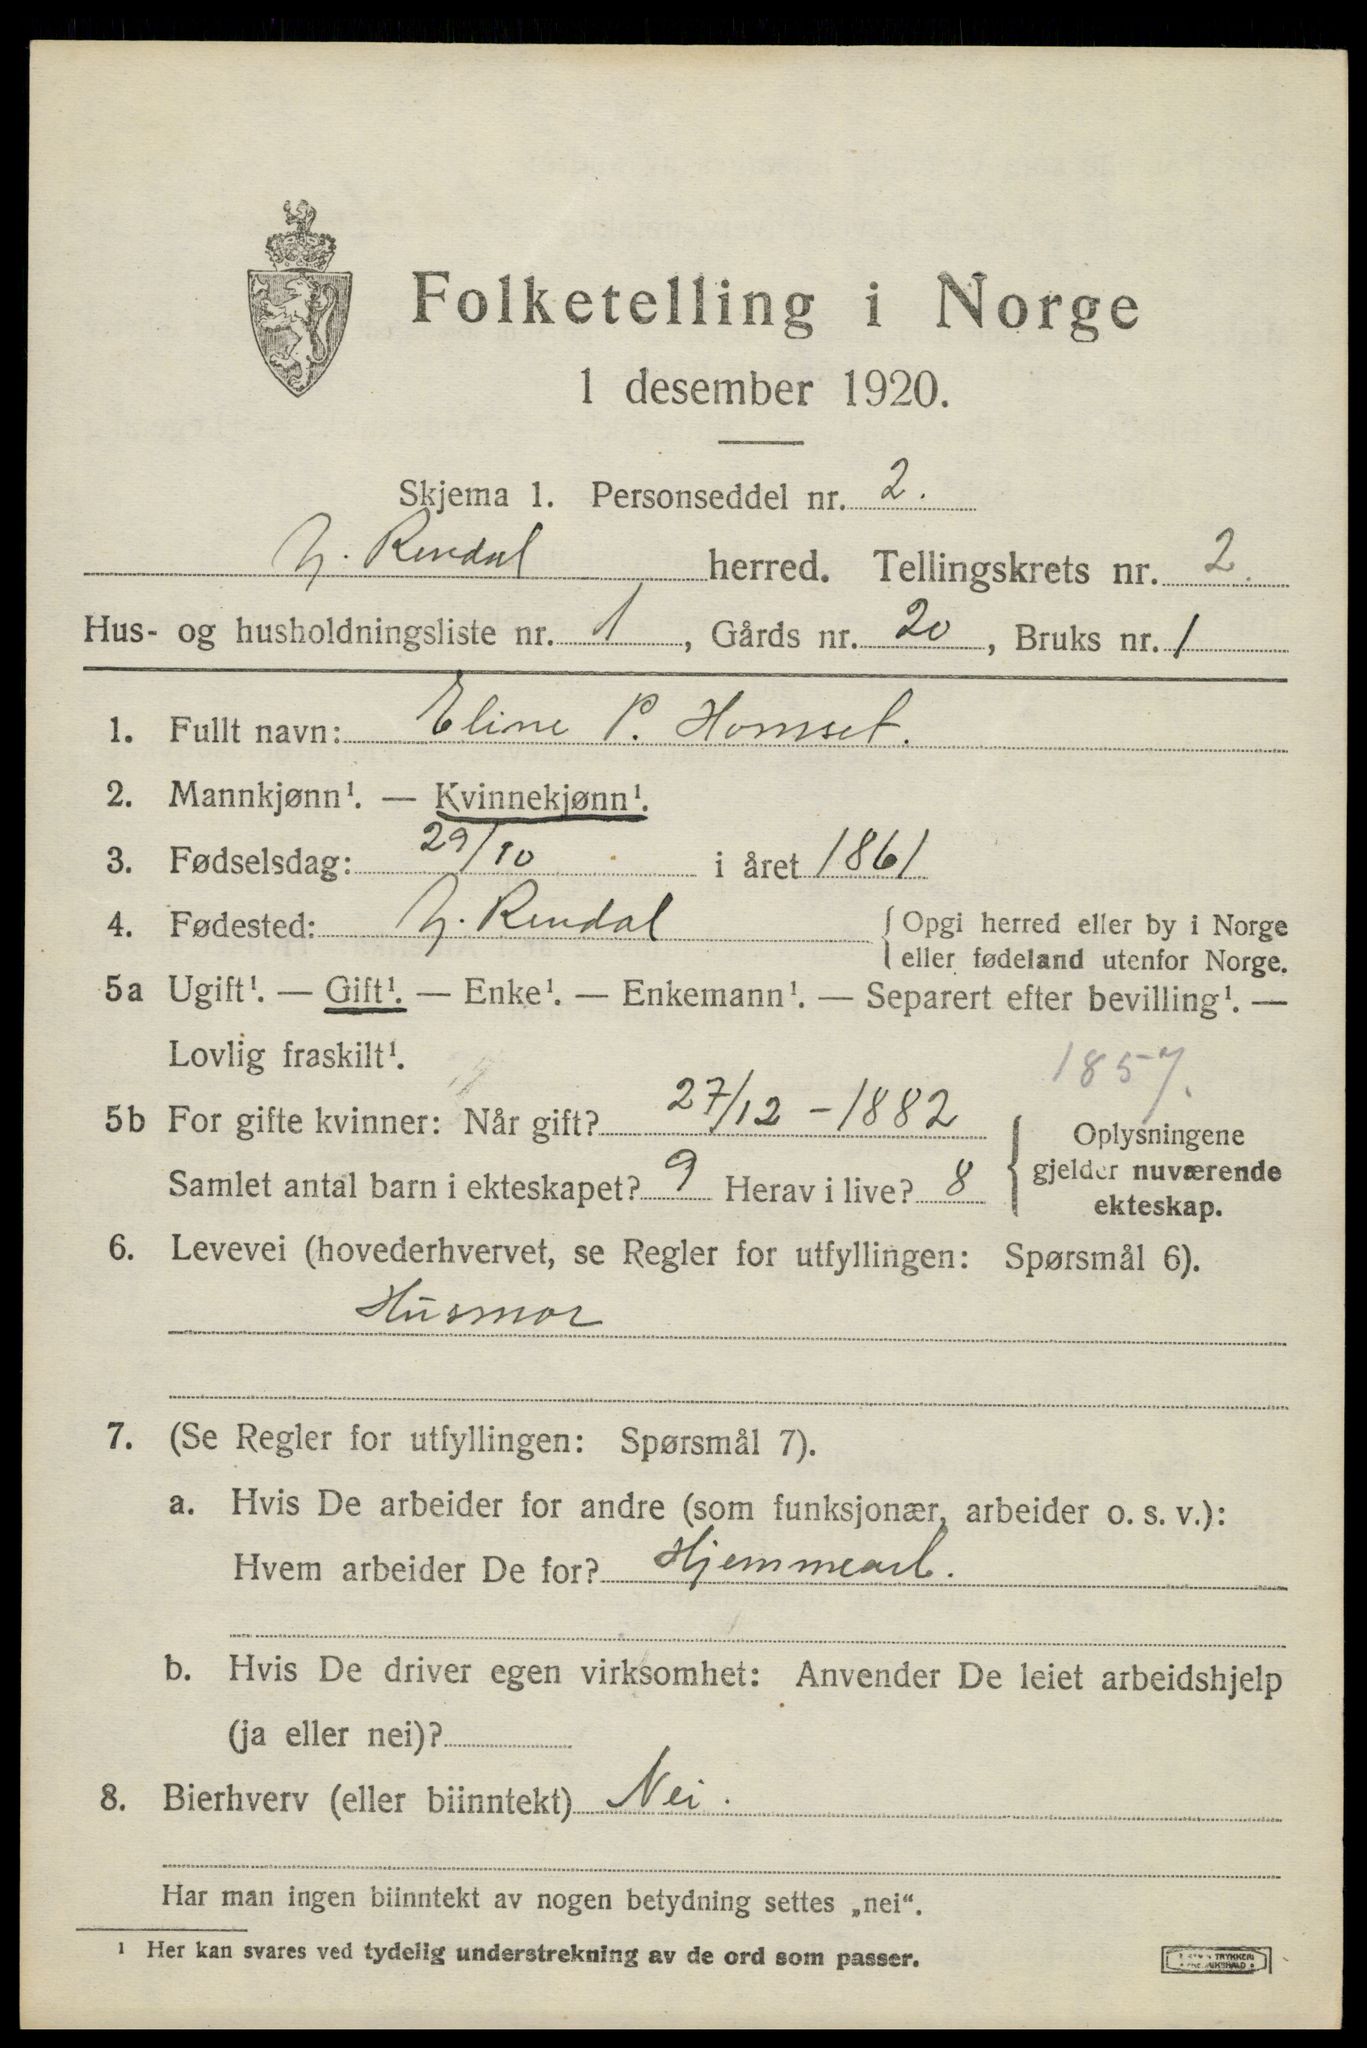 Folketelling i Norge
1 desember 1920.
Skjema 1. Personseddel nr. 2.
Y. Rendal herred. Tellingskrets nr. 2.
Hus- og husholdningsliste nr. 1, Gårds nr. 20, Bruks nr. 1
1. Fullt navn: Eline P. Homset.
2. Mannkjønn¹. — Kvinnekjønn¹.
3. Fødselsdag: 29/10 i året 1861
4. Fødested: Y. Rendal { Opgi herred eller by i Norge
eller fødeland utenfor Norge.
5a Ugift¹. — Gift¹. — Enke¹. — Enkemann¹. — Separert efter bevilling¹. —
Lovlig fraskilt¹.
1857.
5b For gifte kvinner: Når gift? 27/12 - 1882 { Oplysningene
Samlet antal barn i ekteskapet? 9 Herav i live? 8 gjelder nuværende
ekteskap.
6. Levevei (hovederhvervet, se Regler for utfyllingen: Spørsmål 6).
Husmor
7. (Se Regler for utfyllingen: Spørsmål 7).
a. Hvis De arbeider for andre (som funksjonær, arbeider o. s. v.):
Hvem arbeider De for? Hjemmearb.
b. Hvis De driver egen virksomhet: Anvender De leiet arbeidshjelp
(ja eller nei)?
8. Bierhverv (eller biinntekt) Nei.
Har man ingen biinntekt av nogen betydning settes „nei“.
¹ Her kan svares ved tydelig understrekning av de ord som passer.
TRYKKERI